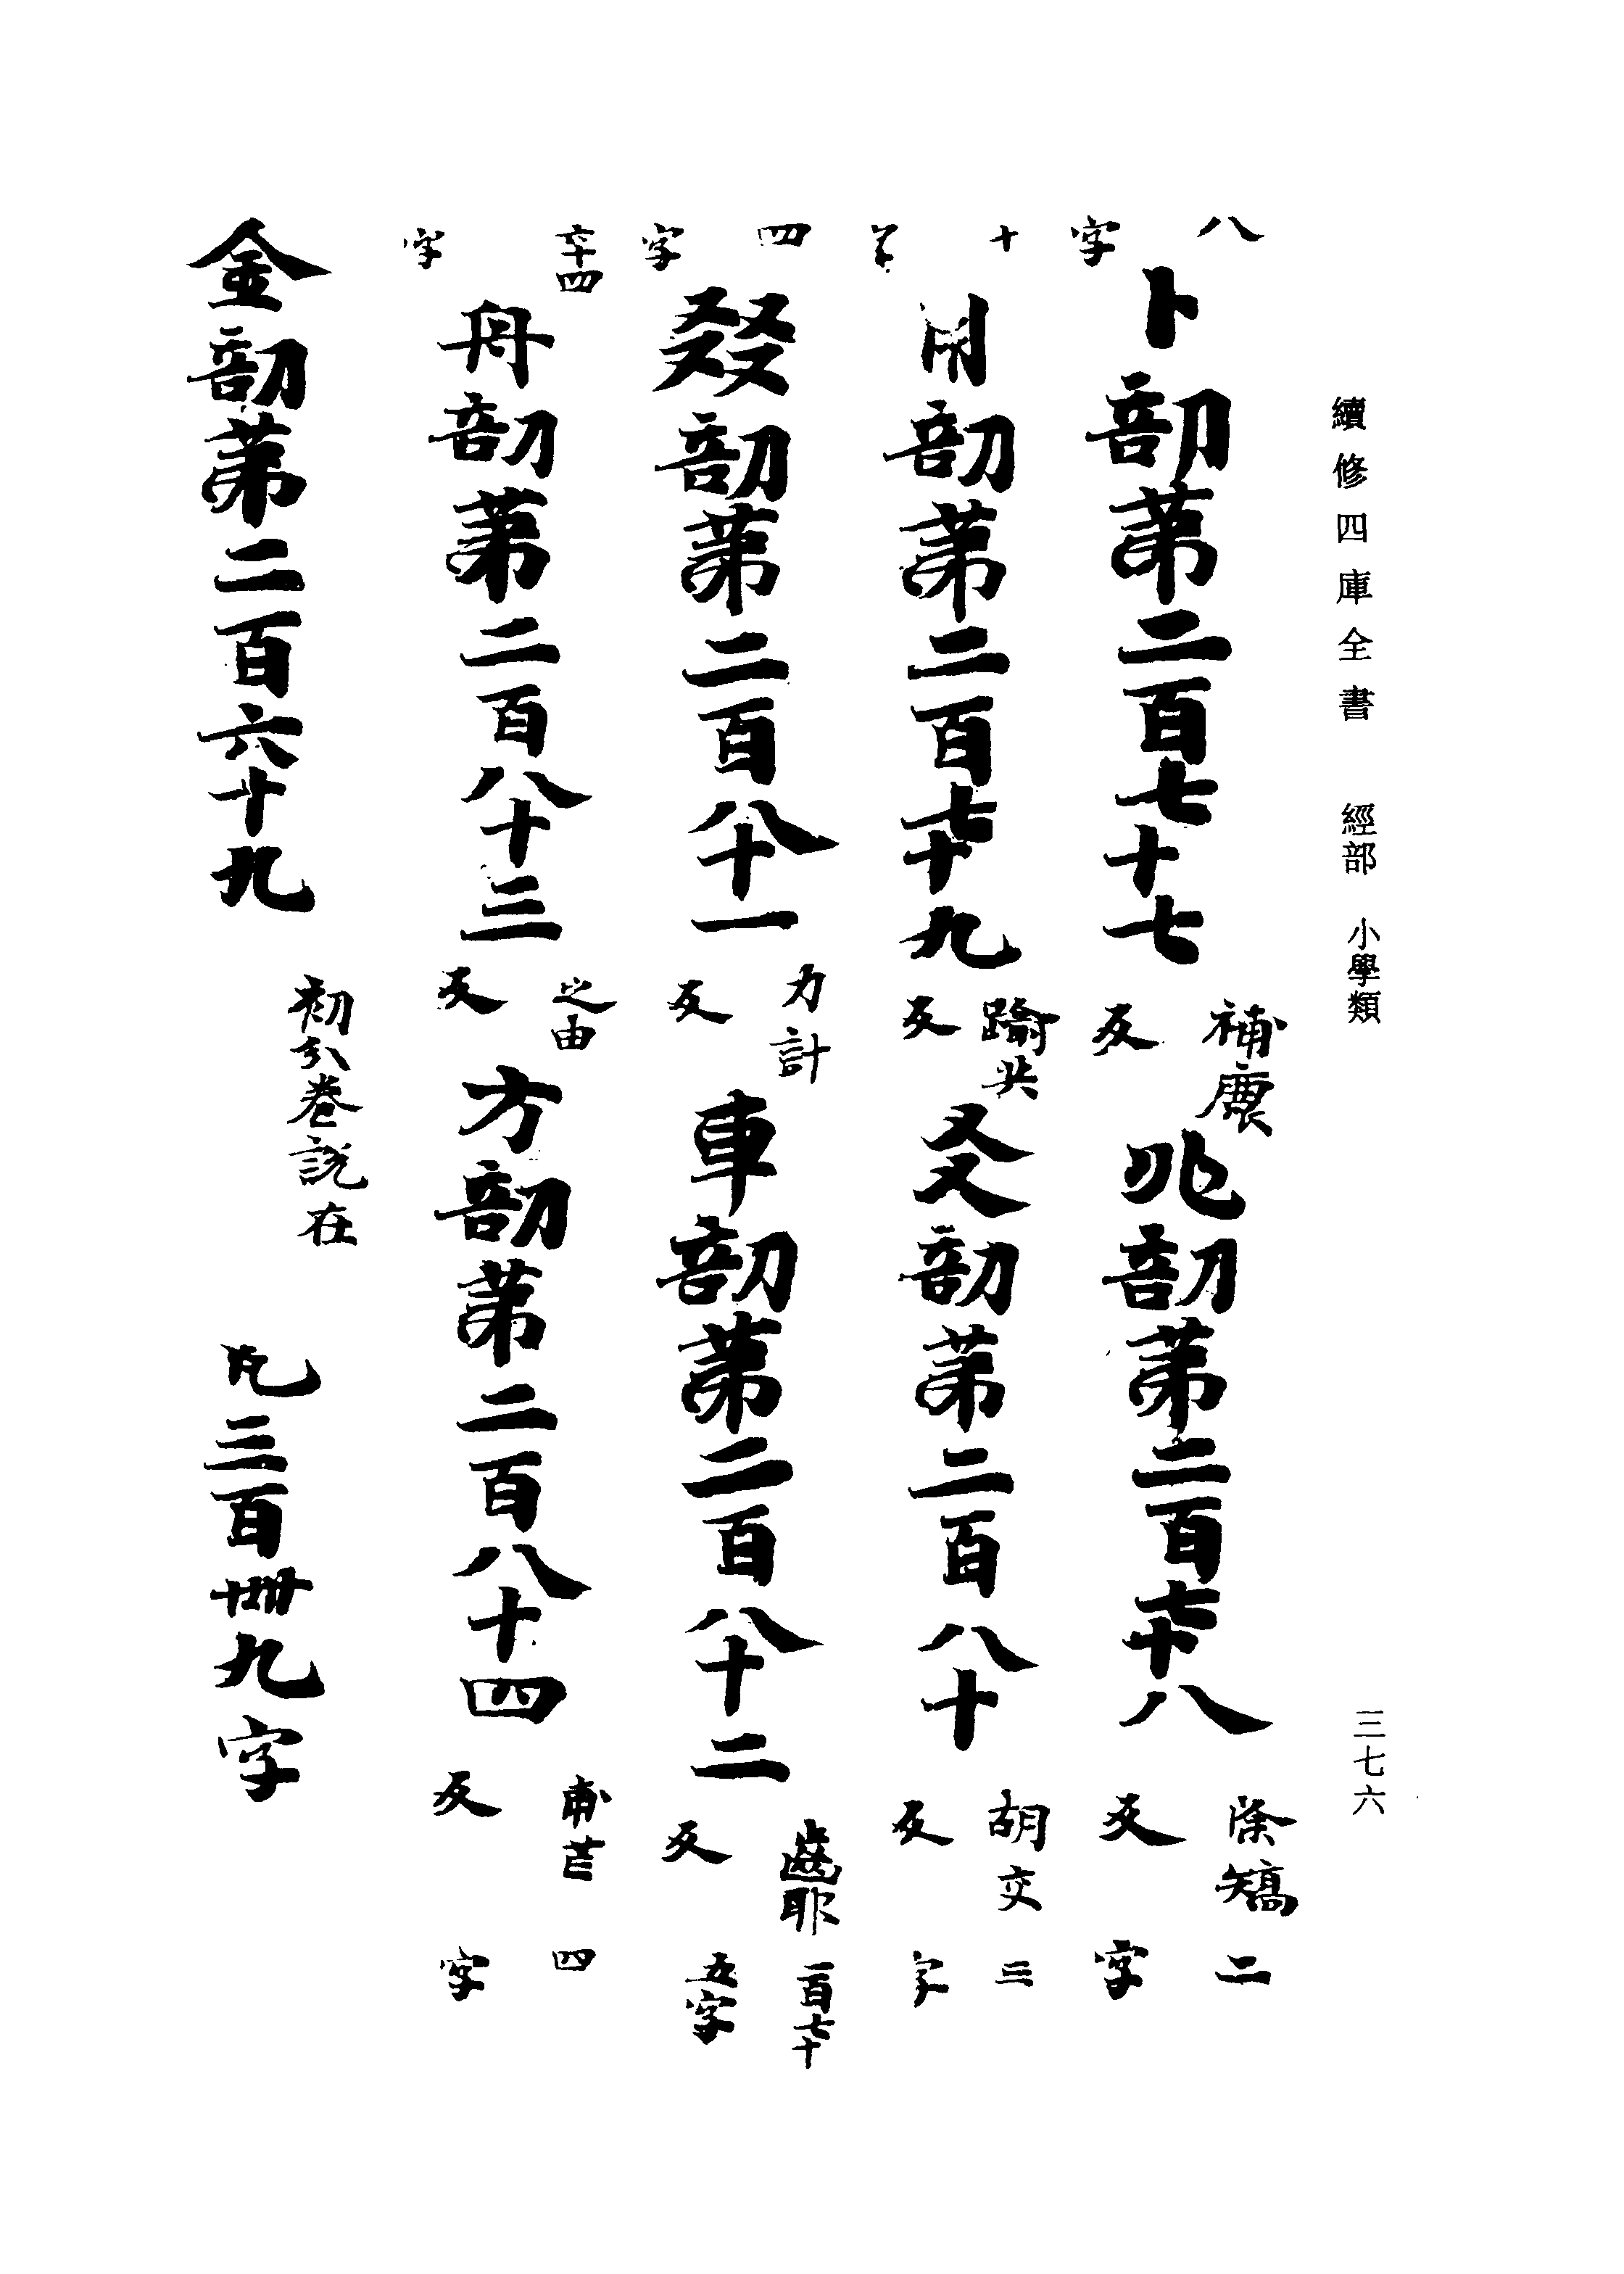 續修四庫全書 經部 小學類
三七六
八字
卜部第二百七十七 補鹿反 兆部第二百七十八 除矯反 二字
十字
用部第二百七十九 踰共反 爻部第二百八十 胡交反 三字
四字
㸚部第二百八十一 力計反 車部第二百八十二 齒耶反 一百七十五字
六十四字
舟部第二百八十三 之由反 方部第二百八十四 甫芒反 四字
金部第二百六十九 初分卷說在 凡三百卌九字